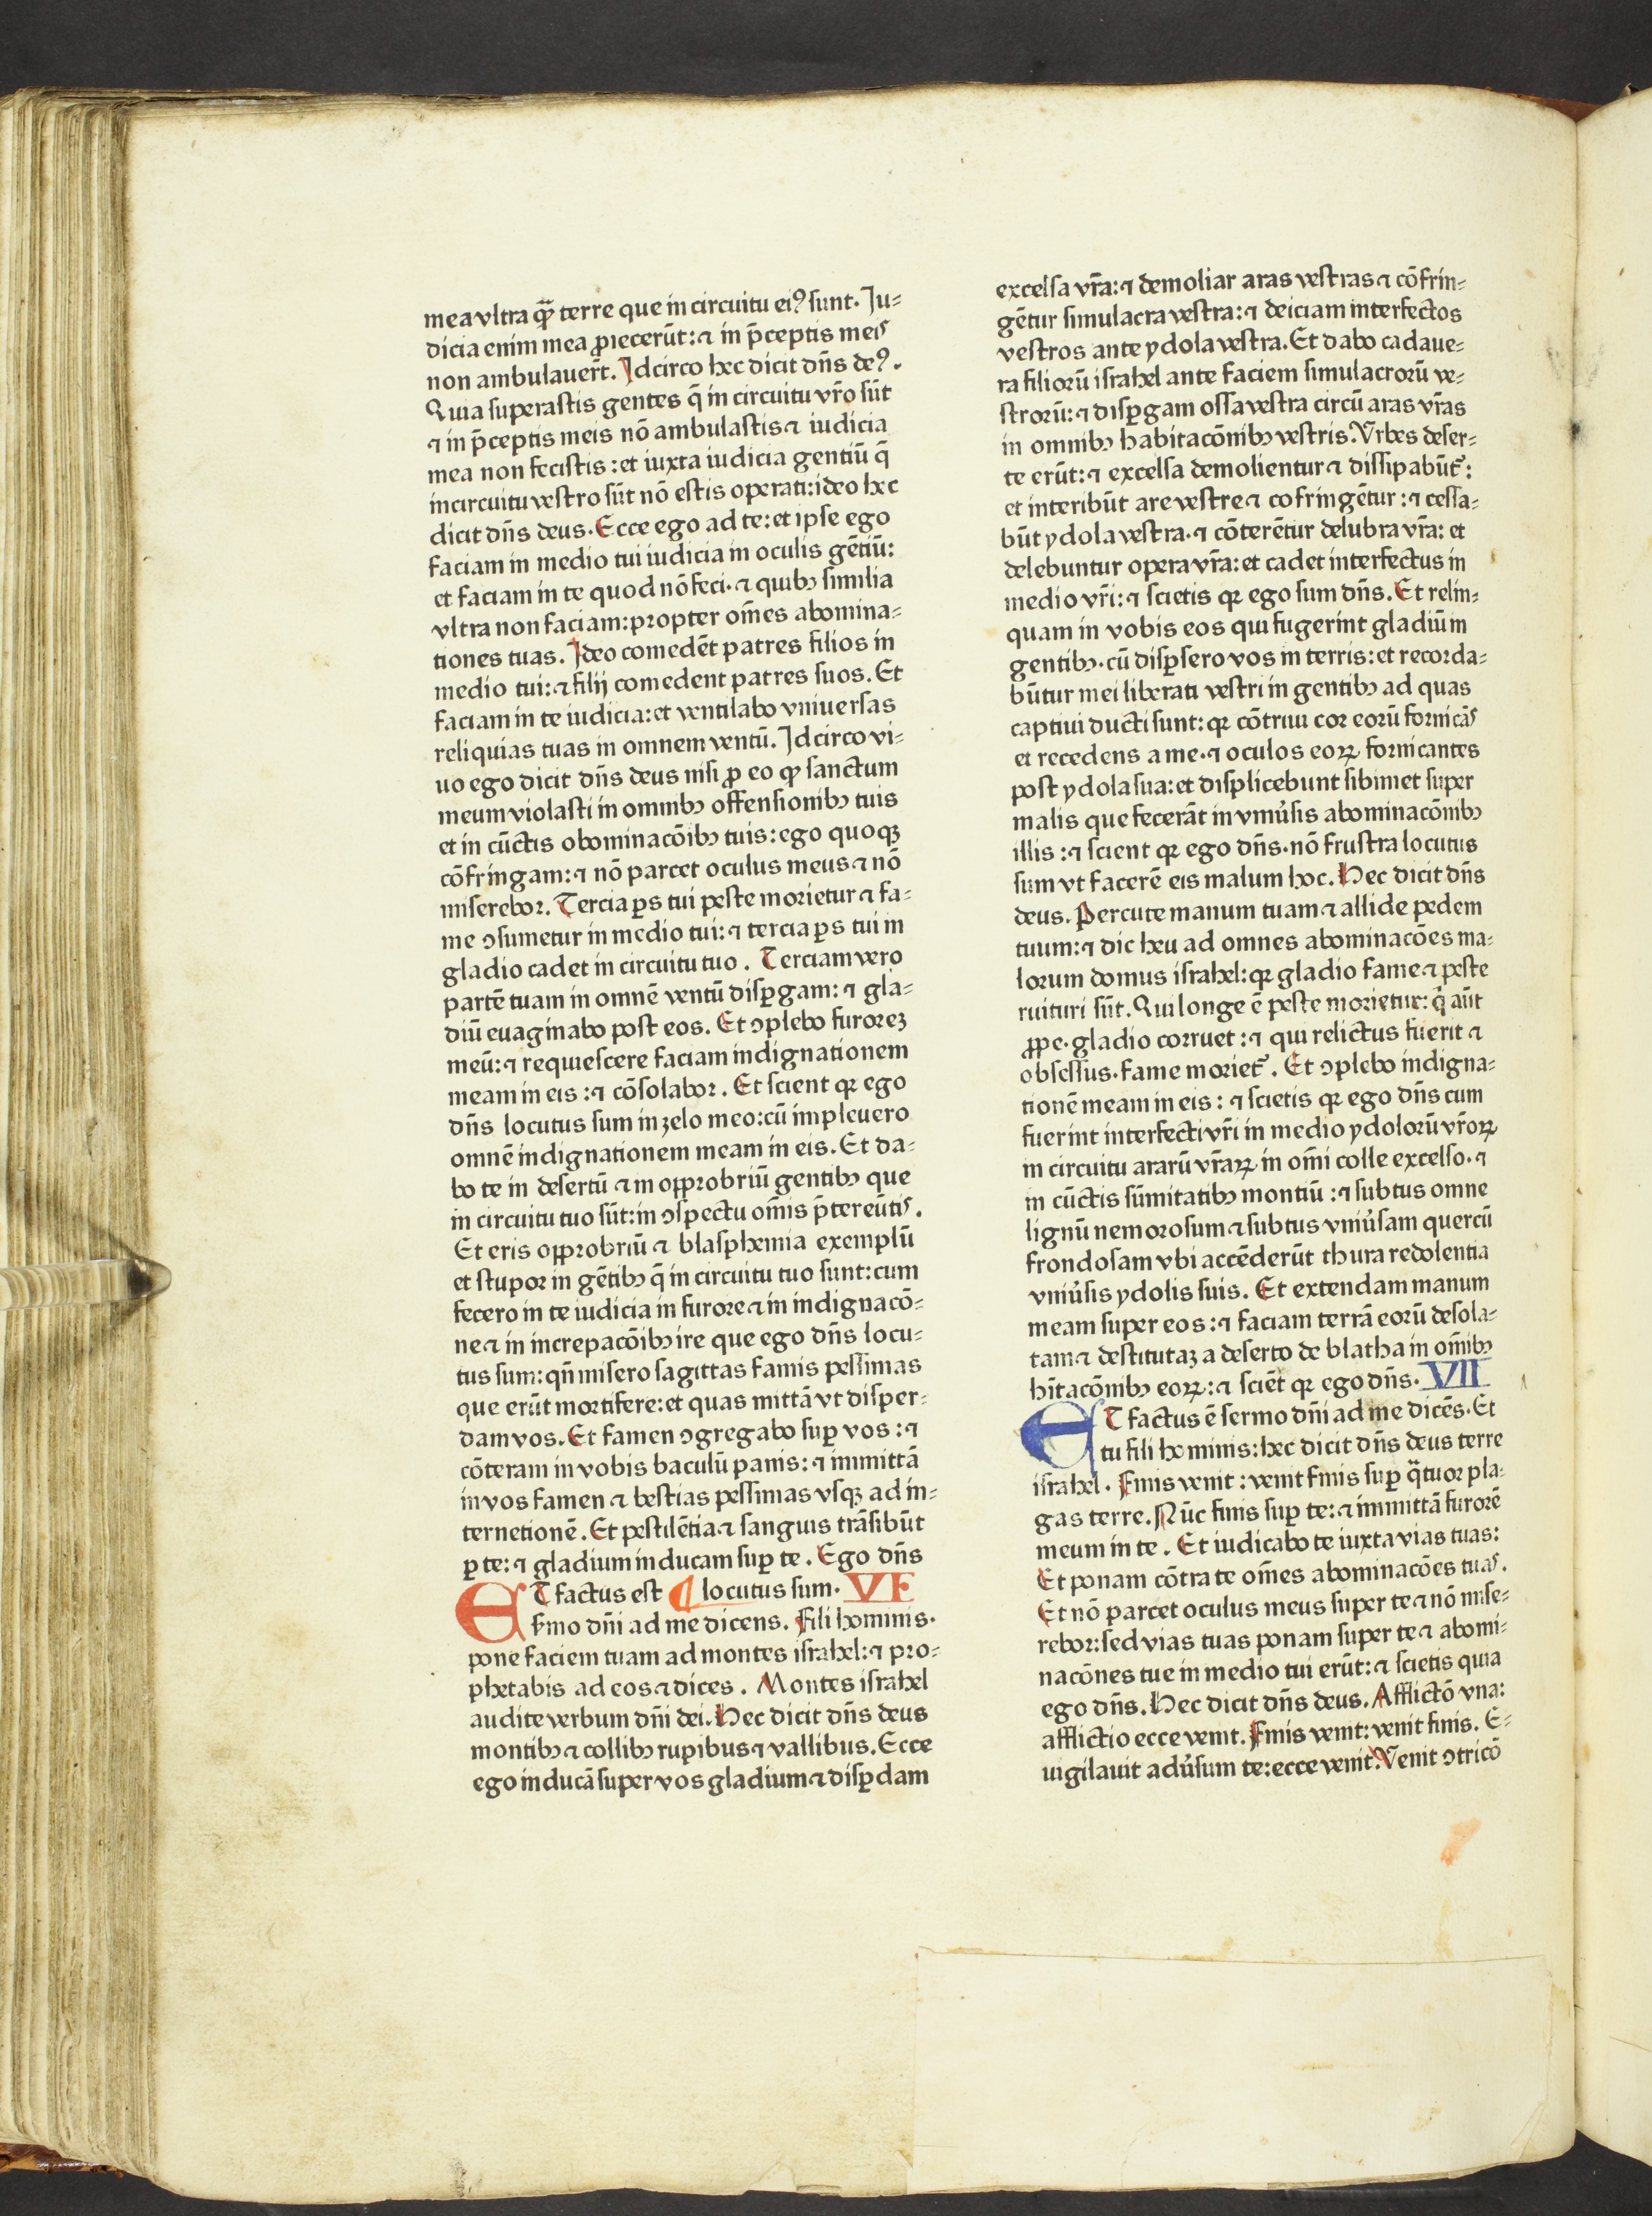 mea vltra q̄ꝫ terre que in circuitu eiꝰ sunt. Iu-
dicia enim mea ꝓiecerūt: ⁊ in p̄ceptis meis
non ambulauer̄t. Idcirco hec dicit dn̄s deꝰ.
Quia superastis gentes q̄ in circuitu vr̄o sūt
⁊ in p̄ceptis meis nō ambulastis ⁊ iudicia
mea non fecistis: et iuxta iudicia gentiū q̄
in circuitu vestro sūt nō estis operati: ideo hec
dicit dn̄s deus. Ecce ego ad te: et ipse ego
faciam in medio tui iudicia in oculis gētiū:
et faciam in te quod nō feci. ⁊ quibꝫ similia
vltra non faciam: propter om̄es abomina-
tiones tuas. Ideo comedēt patres filios in
medio tui: ⁊ filij comedent patres suos. Et
faciam in te iudicia: et ventilabo vniuersas
reliquias tuas in omnem ventū. Idcirco vi-
uo ego dicit dn̄s deus nisi ꝓ eo ꝙ sanctum
meum violasti in omnibꝫ offensionibꝫ tuis
et in cūctis obominacōibꝫ tuis: ego quoqꝫ
cōfringam: ⁊ nō parcet oculus meus ⁊ nō
miserebor. Tercia ꝑs tui peste morietur ⁊ fa-
me ꝯsumetur in medio tui: ⁊ tercia ꝑs tui in
gladio cadet in circuitu tuo. Terciam vero
partē tuam in omnē ventū disꝑgam: ⁊ gla-
diū euaginabo post eos. Et ꝯplebo furoreꝫ
meū: ⁊ requiescere faciam indignationem
meam in eis: ⁊ cōsolabor. Et scient qꝛ ego
dn̄s locutus sum in zelo meo: cū impleuero
omnē indignationem meam in eis. Et da-
bo te in desertū ⁊ in opprobriū gentibꝫ que
in circuitu tuo sūt: in ꝯspectu om̄is p̄tereūtis.
Et eris opprobriū ⁊ blasphemia exemplū
et stupor in gētibꝫ q̄ in circuitu tuo sunt: cum
fecero in te iudicia in furore ⁊ in indignacō-
ne ⁊ in increpacōibꝫ ire que ego dn̄s locu-
tus sum: qn̄ misero sagittas famis pessimas
que erūt mortifere: et quas mittā vt disper-
dam vos. Et famen ꝯgregabo suꝑ vos: ⁊
cōteram in vobis baculū panis: ⁊ immittā
in vos famen ⁊ bestias pessimas vsqꝫ ad in-
ternetionē. Et pestilētia ⁊ sanguis trāsibūt
ꝑ te: ⁊ gladium inducam suꝑ te. Ego dn̄s
ET factus est ¶ locutus sum. VI
s̄mo dn̄i ad me dicens. Fili hominis.
pone faciem tuam ad montes israhel: ⁊ pro-
phetabis ad eos ⁊ dices. Montes israhel
audite verbum dn̄i dei. Hec dicit dn̄s deus
montibꝫ ⁊ collibꝫ rupibus ⁊ vallibus. Ecce
ego inducā super vos gladium ⁊ disꝑdam
excelsa vr̄a: ⁊ demoliar aras vestras ⁊ cōfrin-
gētur simulacra vestra: ⁊ deiciam interfectos
vestros ante ydola vestra. Et dabo cadaue-
ra filiorū israhel ante faciem simulacrorū ve-
strorū: ⁊ disꝑgam ossa vestra circū aras vr̄as
in omnibꝫ habitacōnibꝫ vestris. Vrbes deser-
te erūt: ⁊ excelsa demolientur ⁊ dissipabūt᷑:
et interibūt are vestre ⁊ cofringētur: ⁊ cessa-
būt ydola vestra. ⁊ cōterētur delubra vr̄a: et
delebuntur opera vr̄a: et cadet interfectus in
medio vr̄i: ⁊ scietis qꝛ ego sum dn̄s. Et relin-
quam in vobis eos qui fugerint gladiū in
gentibꝫ. cū disꝑsero vos in terris: et recorda-
būtur mei liberati vestri in gentibꝫ ad quas
captiui ducti sunt: qꝛ cōtriui cor eorū fornicās
et recedens a me. ⁊ oculos eoꝝ fornicantes
post ydola sua: et displicebunt sibimet super
malis que fecerāt in vniu̓sis abominacōnibꝫ
illis: ⁊ scient qꝛ ego dn̄s. nō frustra locutus
sum vt facerē eis malum hoc. Hec dicit dn̄s
deus. Percute manum tuam ⁊ allide pedem
tuum: ⁊ dic heu ad omnes abominacōes ma-
lorum domus israhel: qꝛ gladio fame ⁊ peste
ruituri sūt. Qui longe ē peste morietur: q̇ aūt
ꝓpe. gladio corruet: ⁊ qui relictus fuerit ⁊
obsessus. fame moriet᷑. Et ꝯplebo indigna-
tionē meam in eis: ⁊ scietis qꝛ ego dn̄s cum
fuerint interfecti vr̄i in medio ydolorū vr̄oꝝ
in circuitu ararū vr̄aꝝ in om̄i colle excelso. ⁊
in cūctis sūmitatibꝫ montiū: ⁊ subtus omne
lignū nemorosum ⁊ subtus vniu̓sam quercū
frondosam vbi accēderūt thura redolentia
vniu̓sis ydolis suis. Et extendam manum
meam super eos: ⁊ faciam terrā eorū desola-
tam ⁊ destitutaꝫ a deserto de blatha in om̄ibꝫ
hītacōnibꝫ eoꝝ: ⁊ sciēt qꝛ ego dn̄s. VII
ET factus ē sermo dn̄i ad me dicēs. Et
tu fili hominis: hec dicit dn̄s deus terre
israhel. Finis venit: venit finis suꝑ q̄tuor pla-
gas terre. Nūc finis suꝑ te: ⁊ immittā furorē
meum in te. Et iudicabo te iuxta vias tuas:
Et ponam cōtra te om̄es abominacōes tuas.
Et nō parcet oculus meus super te ⁊ nō mise-
rebor: sed vias tuas ponam super te ⁊ abomi-
nacōnes tue in medio tui erūt: ⁊ scietis quia
ego dn̄s. Hec dicit dn̄s deus. Afflictō vna:
afflictio ecce venit. Finis venit: venit finis. E-
uigilauit adu̓sum te: ecce venit. Venit ꝯtricō